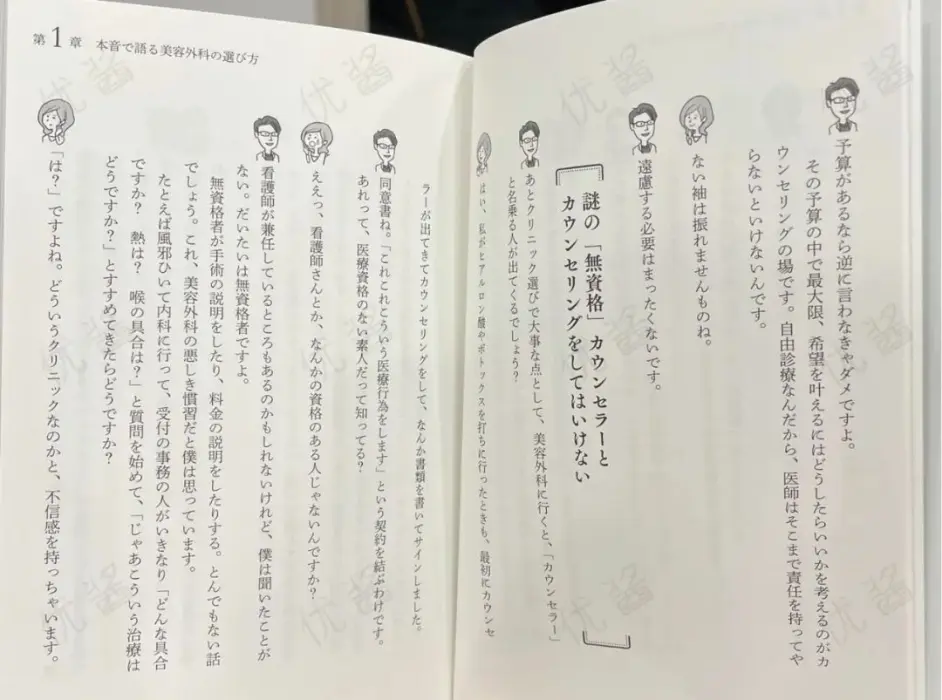 予算があるなら逆に言わなきゃダメですよ。
その予算の中で最大限、希望を叶えるにはどうしたらいいかを考えるのがカ
ウンセリングの場です。自由診療なんだから、医師はそこまで責任を持ってや
らないといけないんです。
ない袖は振れませんものね。
遠慮する必要はまったくないです。
謎の「無資格」カウンセラーと
カウンセリングをしてはいけない
あとクリニック選びで大事な点として、美容外科に行くと、「カウンセラー」
と名乗る人が出てくるでしょう?
はい、私がヒアルロン酸やボトックスを打ちに行ったときも、最初にカウンセ
第1章 本音で語る美容外科の選び方
ラーが出てきてカウンセリングをして、なんか書類を書いてサインしました。
同意書ね。「これこれこういう医療行為をします」という契約を結ぶわけです。
あれって、医療資格のない素人だって知ってる?
ええっ、看護師さんとか、なんかの資格のある人じゃないんですか?
看護師が兼任しているところもあるのかもしれないけれど、僕は聞いたことが
ない。だいたいは無資格者ですよ。
無資格者が手術の説明をしたり、料金の説明をしたりする。とんでもない話
でしょう。これ、美容外科の悪しき慣習だと僕は思っています。
たとえば風邪ひいて内科に行って、受付の事務の人がいきなり「どんな具合
ですか? 熱は? 喉の具合は?」と質問を始めて、「じゃあこういう治療は
どうですか?」とすすめてきたらどうですか?
「は?」ですよね。どういうクリニックなのかと、不信感を持っちゃいます。
优酱